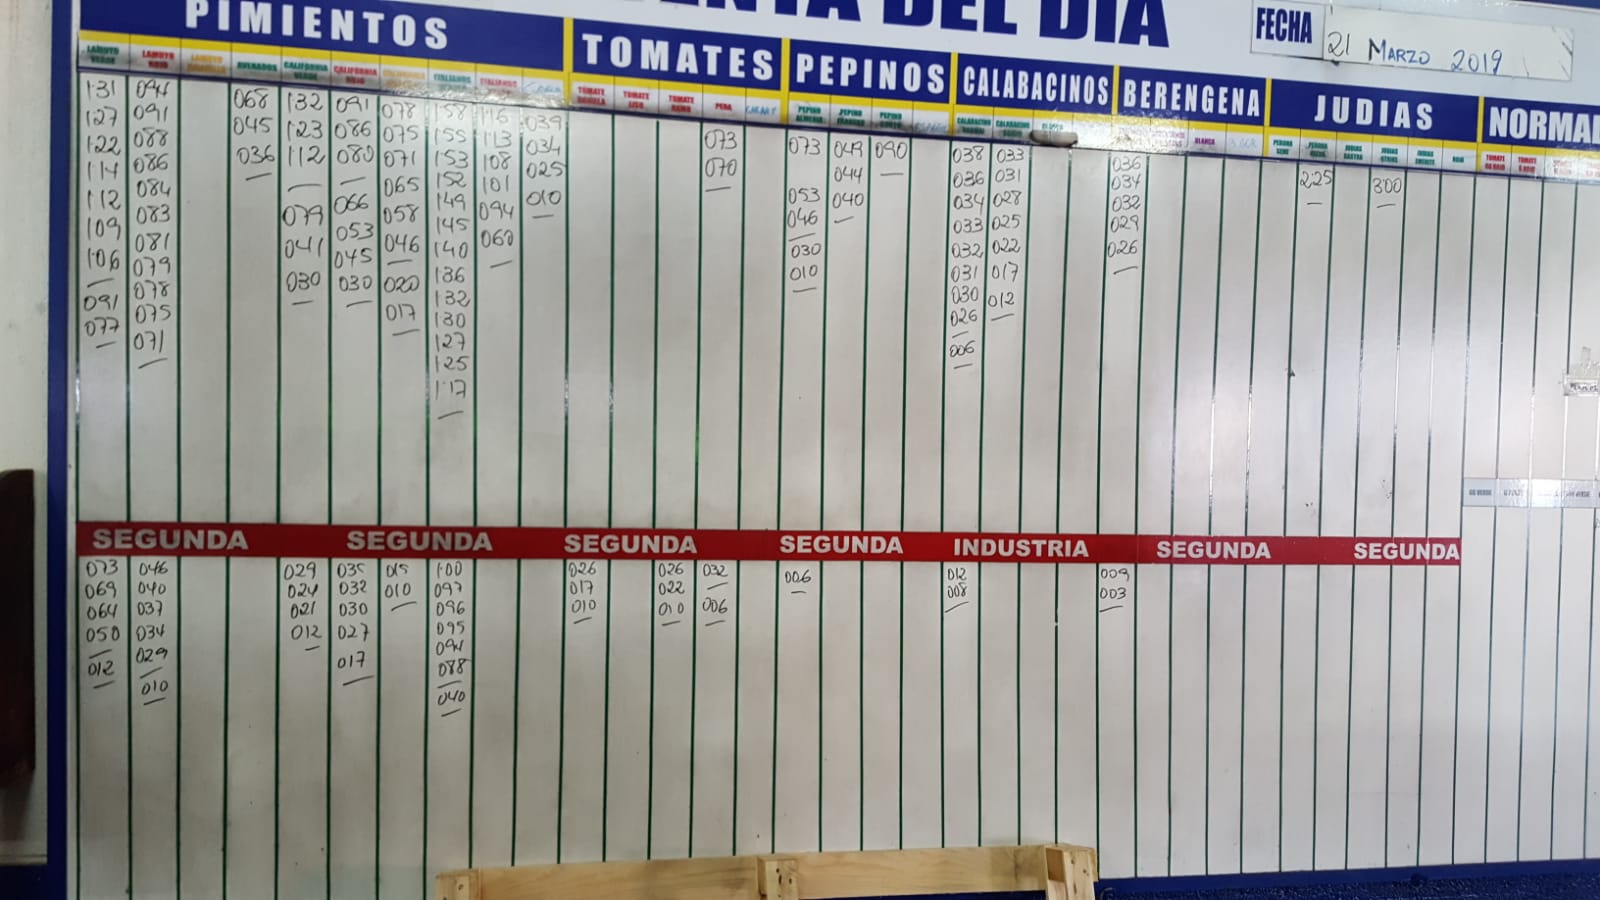 DEL DIA
FECHA
21 MARZO 2019
PIMIENTOS
TOMATES
PEPINOS
CALABACINOS
BERENGENA
JUDIAS
LAMUYO VERDE
LAMUYO ROJO
ASURADOS
CALIFORNIA VERDE
CALIFORNIA ROJO
TOMATE LISO
TOMATE RAMO
PERA
PEPINO ALMERIA
PEPINO FRANCES
CALABACINO
BLANCA
131
127
122
114
112
109
106
091
077
094
091
088
086
084
083
081
079
078
075
071
068
045
036
132
123
112
079
041
030
091
086
080
066
053
045
030
078
075
071
065
058
046
020
017
158
155
153
152
149
145
140
136
132
130
127
125
117
116
113
108
101
094
060
039
034
025
010
073
070
073
053
046
030
010
049
044
040
090
038
036
034
033
032
031
030
026
006
033
031
028
025
022
017
012
036
034
032
029
026
2:25
300
SEGUNDA SEGUNDA SEGUNDA SEGUNDA INDUSTRIA SEGUNDA SEGUNDA
073
069
064
050
012
046
040
037
034
029
010
029
024
021
012
035
032
030
027
017
015
010
1:00
097
096
095
094
088
040
026
017
010
026
022
010
032
006
006
012
008
009
003